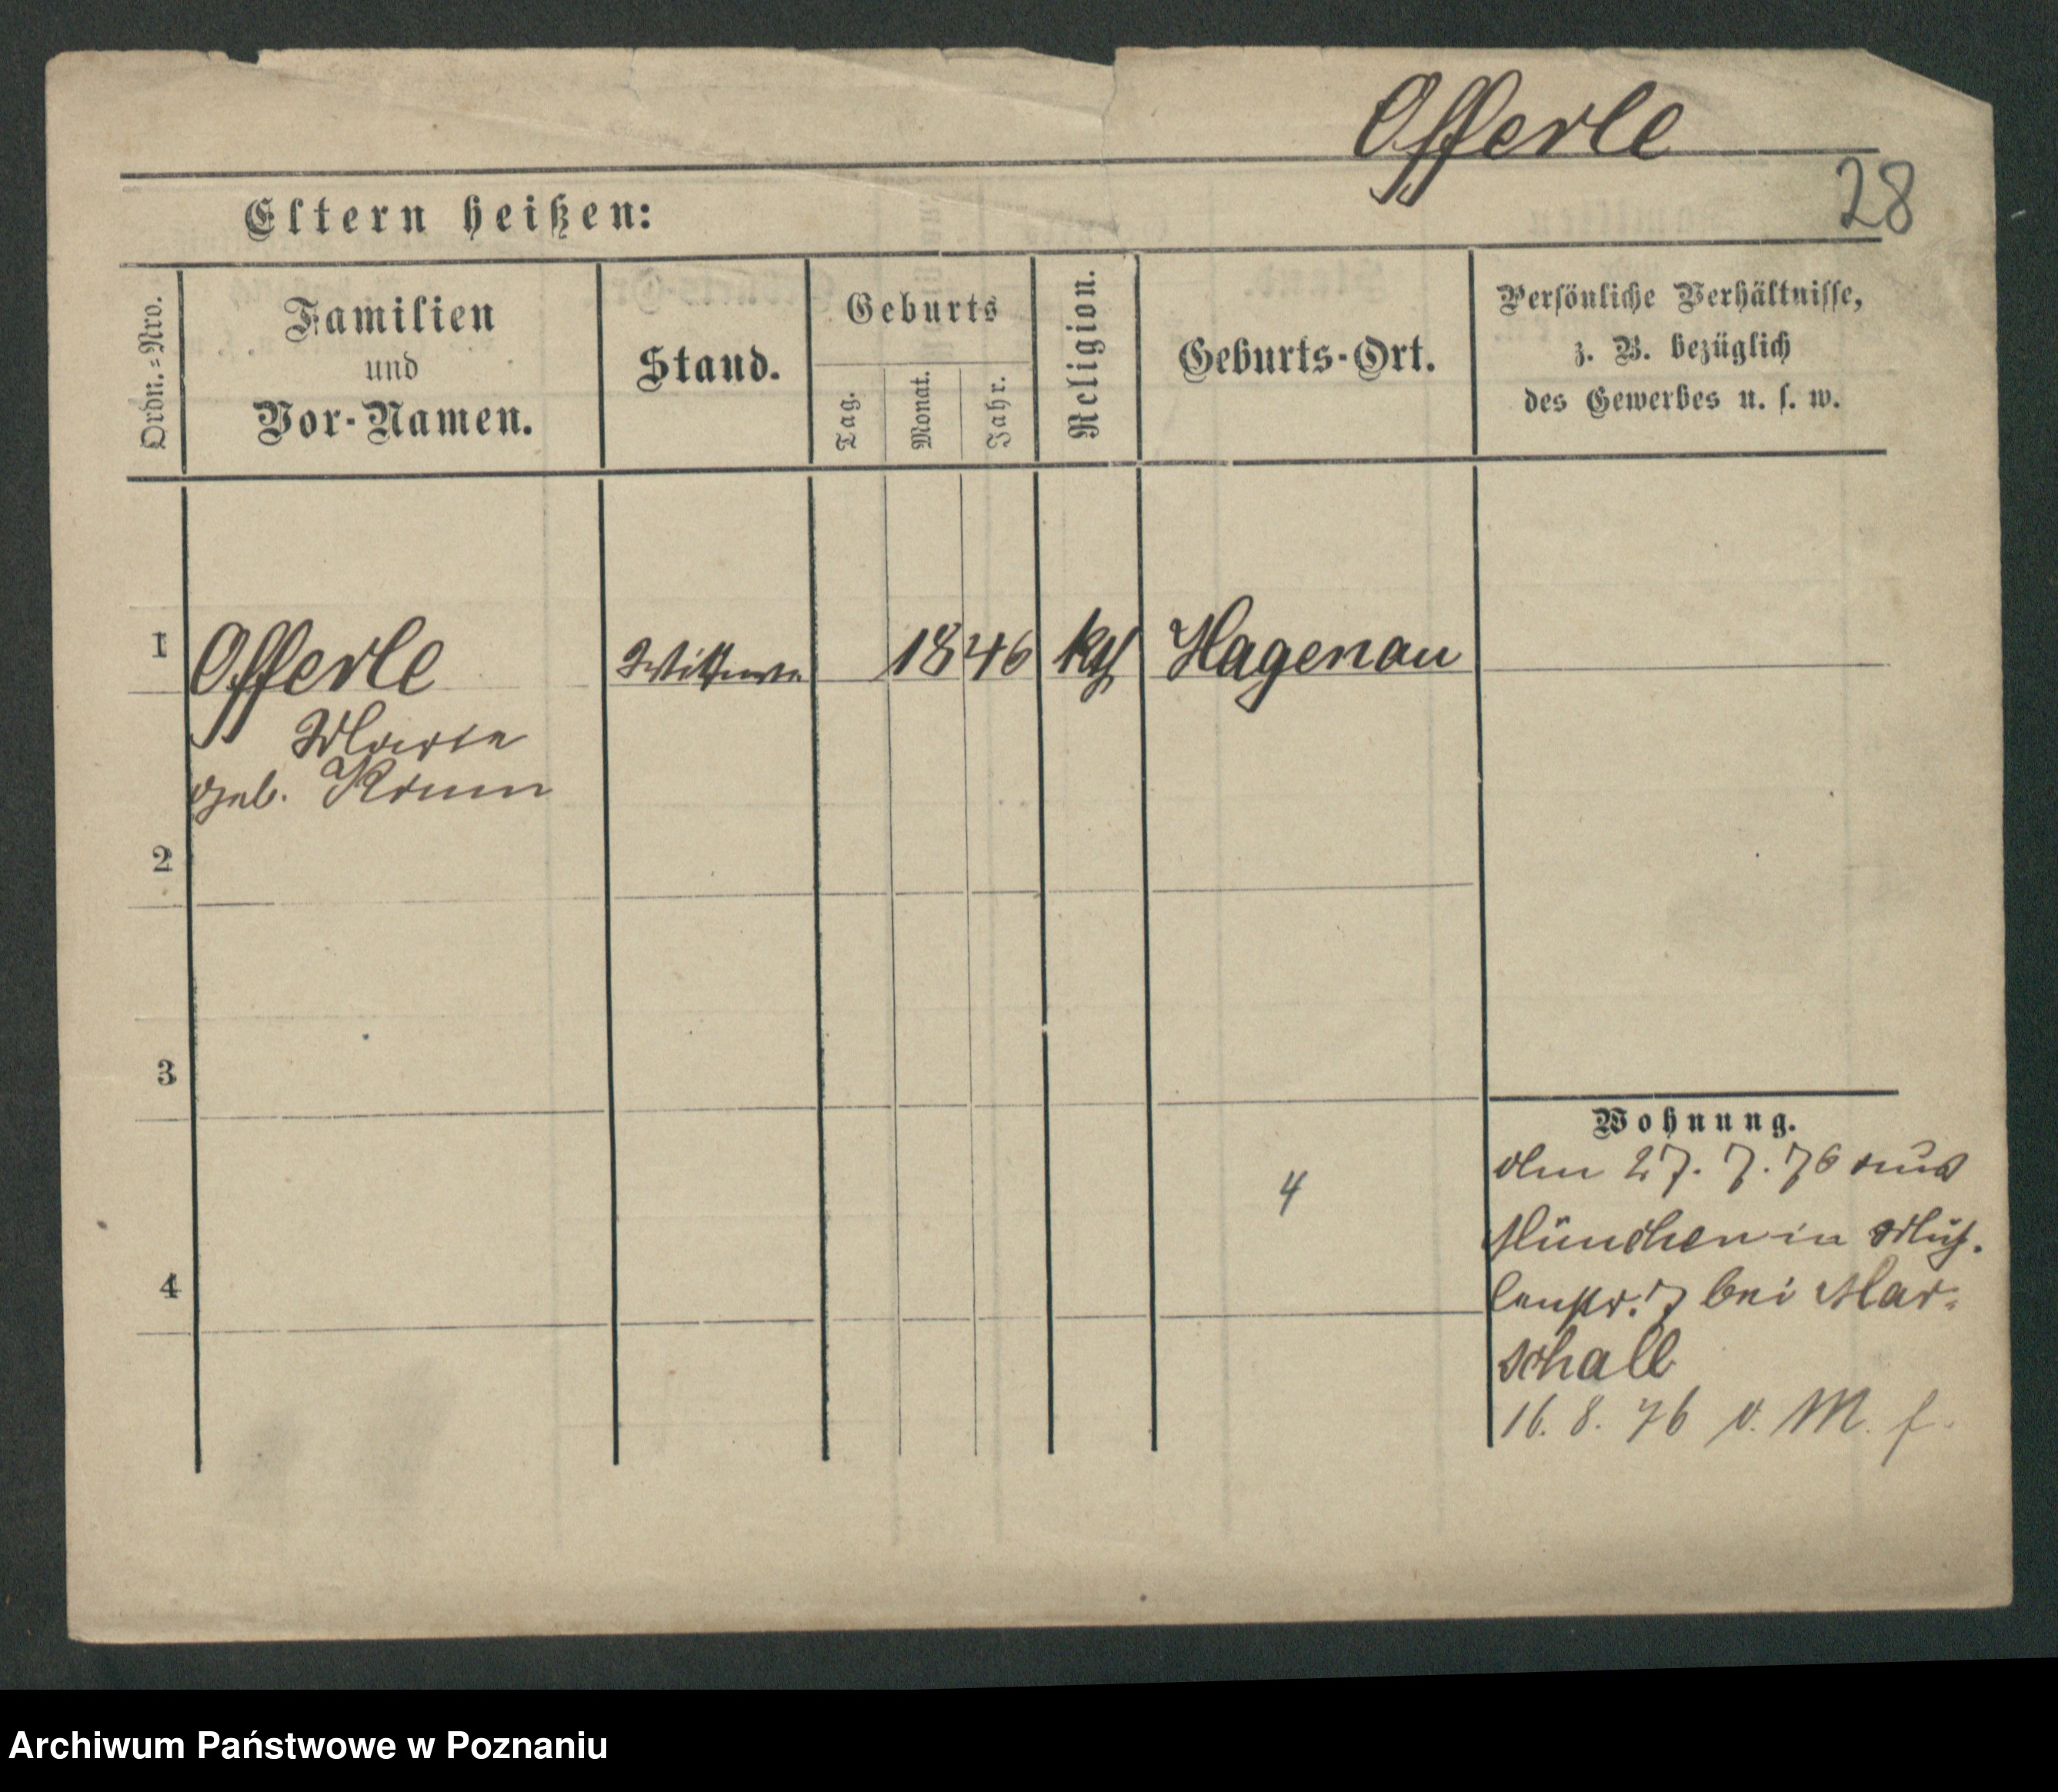 Offerle
28
Eltern heißen:
Ordn.=Nro.
Familien
und
Vor-Namen.
Stand.
Geburts
Tag.
Monat.
Jahr.
Religion.
Geburts-Ort.
Persönliche Verhältnisse,
z. B. bezüglich
des Gewerbes u. s. w.
1
Offerle
Marie
geb.
Wittwe
1846
kth
Hagenau
2
3
4
4
Wohnung.
Am 27. 7. 76 aus
München in Müh-
lenstr. 7 bei Mar-
schall
16. 8. 76 v. M. f.
Archiwum Państwowe w Poznaniu